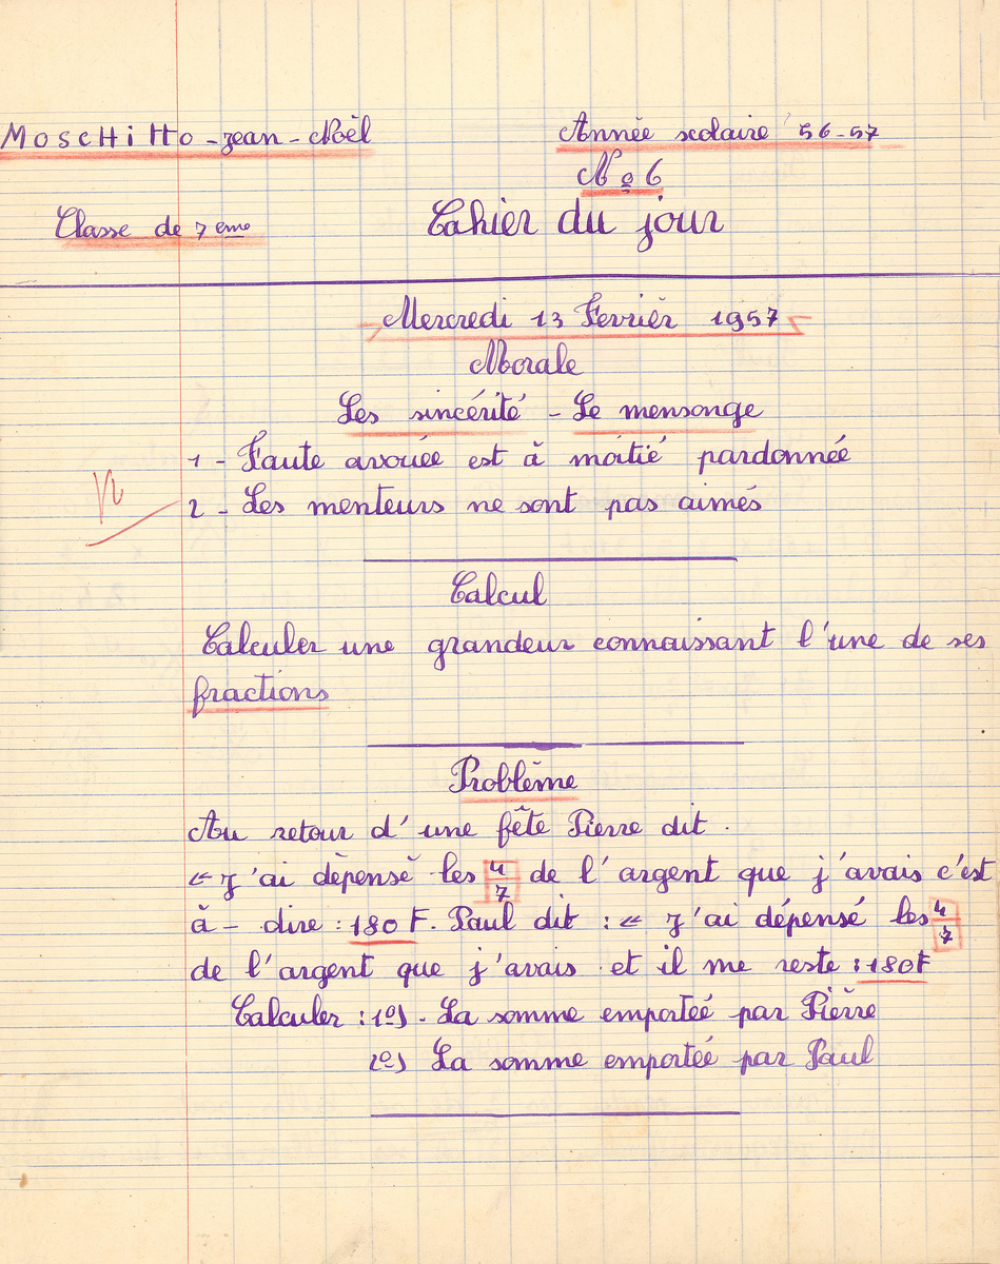 MoscHitto - jean - Noël
Année scolaire 56-57
Nº 6
Classe de 7 ème
Cahier du jour
Mercredi 13 Fevrièr 1957
Morale
Les sincérité - Le mensonge
1 - Faute avouée est à moitié pardonnée
2 - Les menteurs ne sont pas aimés
Calcul
Calculer une grandeur connaissant l'une de ses
fractions
Problème
Au retour d'une fête Pierre dit.
« J'ai dépensé les 4/7 de l'argent que j'avais c'est
à - dire : 180 F. Paul dit : « J'ai dépensé les 4/7
de l'argent que j'avais et il me reste : 180F
Calculer : 1º) - La somme emporteé par Pierre
2º) La somme emporteé par Paul